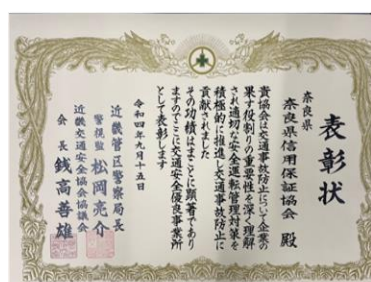 表彰状
奈良県
奈良県信用保証協会 殿
貴協会は交通事故防止について企業の
果す役割りの重要性を深く理解
され適切な安全運転管理対策を
積極的に推進し交通事故防止に
貢献されました
その功績はまことに顕著であり
ますのでここに交通安全優良事業所
として表彰します
令和四年九月十五日
近畿管区警察局長
警視監 松岡亮介
近畿交通安全協会協議会
会長 銭高善雄